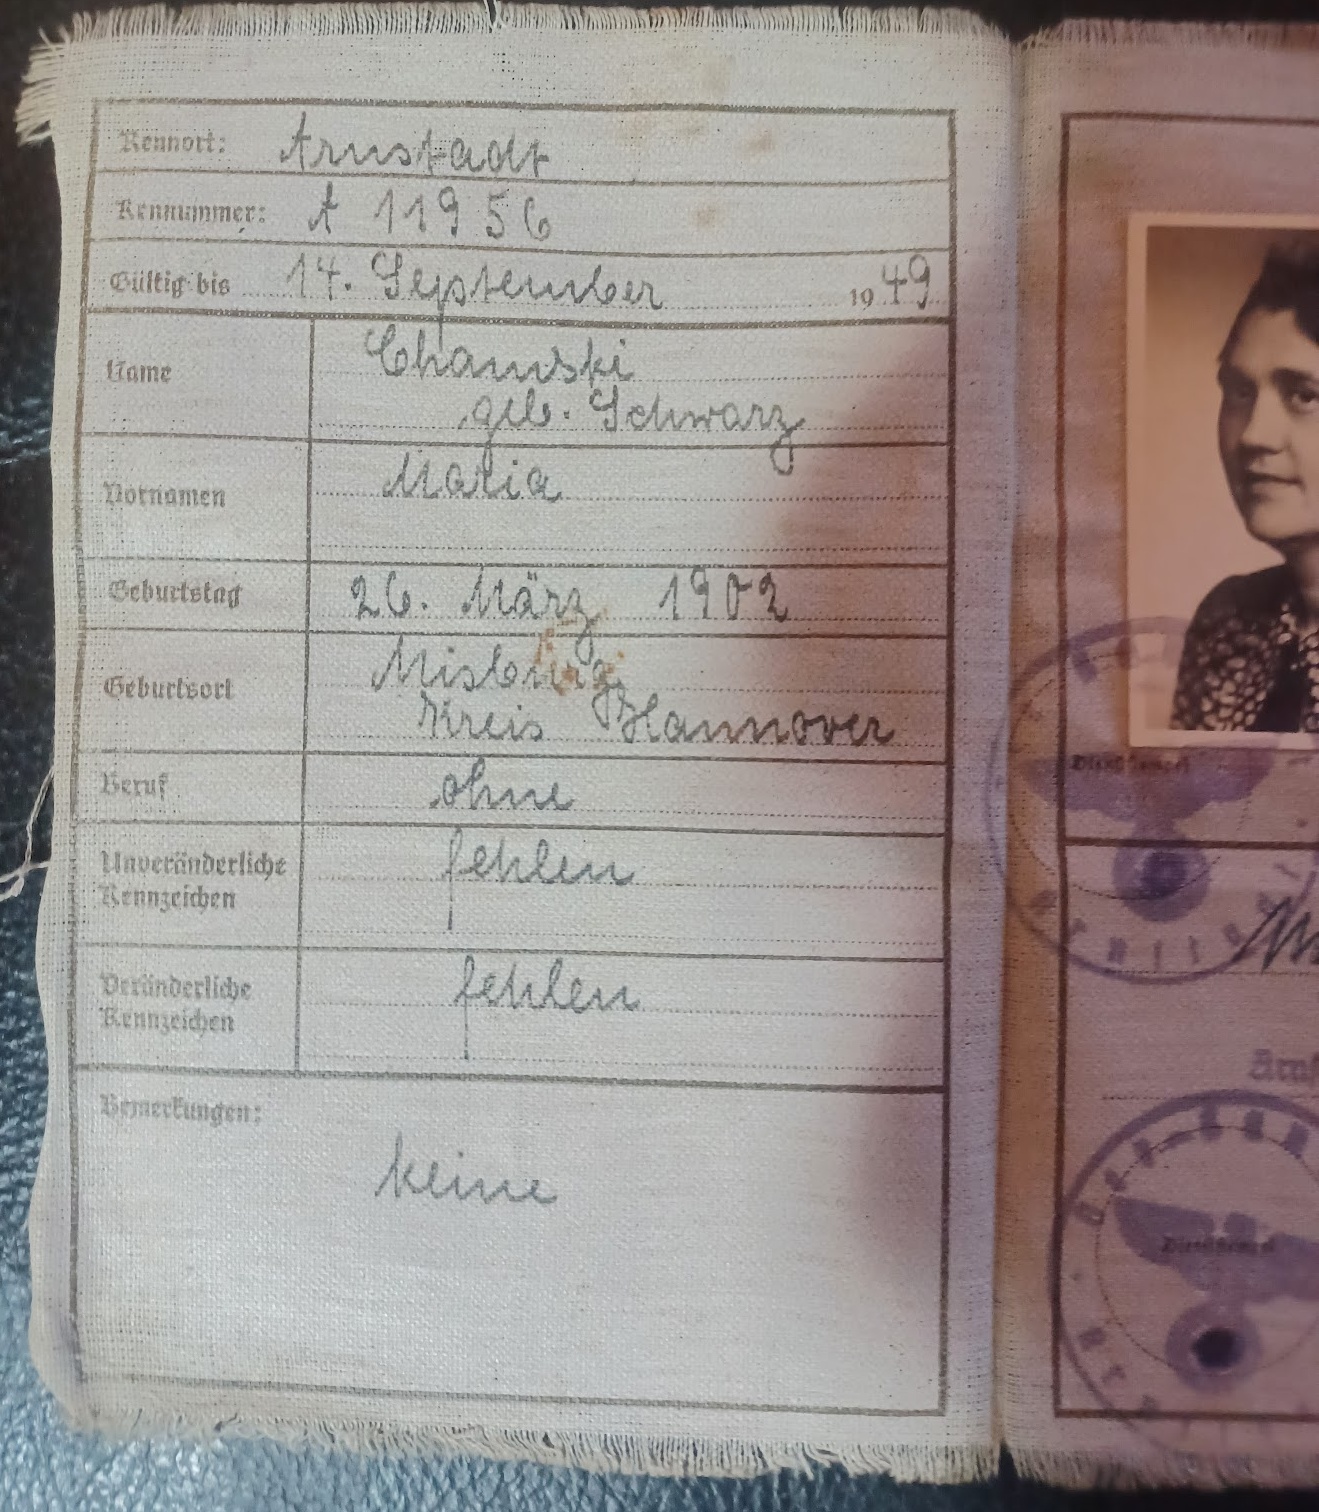 Kennort: Arnstadt
Kennummer: A 11956
Gültig bis 14. September 1949
Name Chamski
geb. Schwarz
Vornamen Maria
Geburtstag 26. März 1902
Geburtsort Misburg
Kreis Hannover
Beruf ohne
Unveränderliche fehlen
Kennzeichen
Veränderliche fehlen
Kennzeichen
Bemerkungen:
keine
Dienststempel
Dienststempel